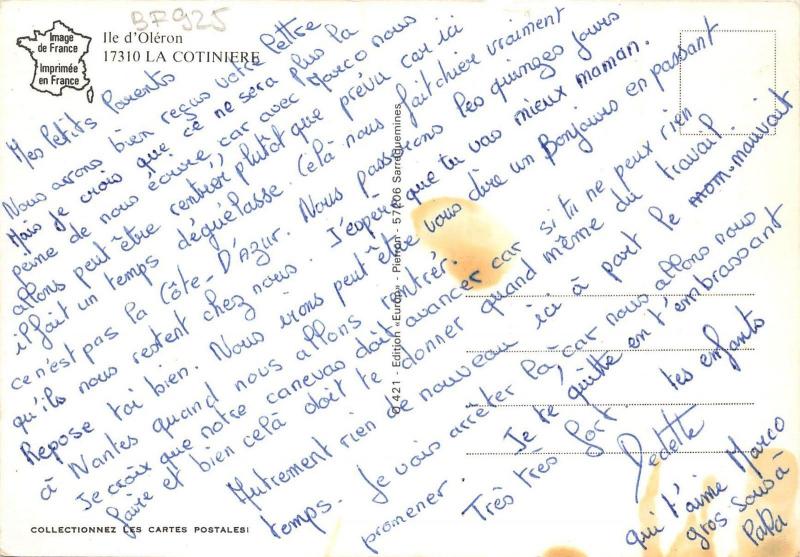 BF925
Image
de France
Imprimée
en France
Ile d'Oléron
17310 LA COTINIERE
Mes Petits Parents
Nous avons bien reçus votre lettre
Mais je crois que ce ne sera plus la
peine de nous écrire, car avec Marco nous
allons peut-être rentrer plutôt que prévu car ici
il fait un temps déguélasse. Celà nous fait chier vraiment
ce n'est pas la Côte-D'Azur. Nous passerons les quinzes jours
qu'ils nous restent chez nous. J'espère que tu vas mieux maman.
Repose toi bien. Nous irons peut-être vous dire un Bonjours en passant
à Nantes quand nous allons rentrer.
Je crois que notre canevas doit avancer car si tu ne peux rien
faire et bien celà doit te donner quand même du travail.
Autrement rien de nouveau ici à part le mom-mauvait
temps. Je vais arrêter là, car nous allons nous
promener. Je te quitte en t'embrassant
Très très fort tes enfants
Dedette
qui t'aime Marco
gros sous à
PaPa
O 421 - Edition «Europ» - Pierron - 57206 Sarreguemines
COLLECTIONNEZ LES CARTES POSTALES!